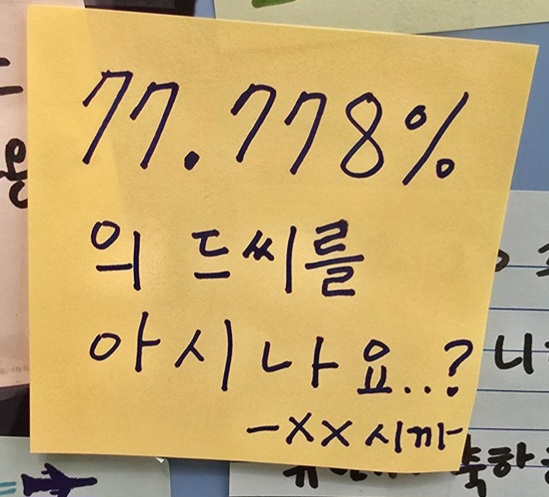 77.778%
의 드씨를
아시나요..?
-XX시까-
니
축하